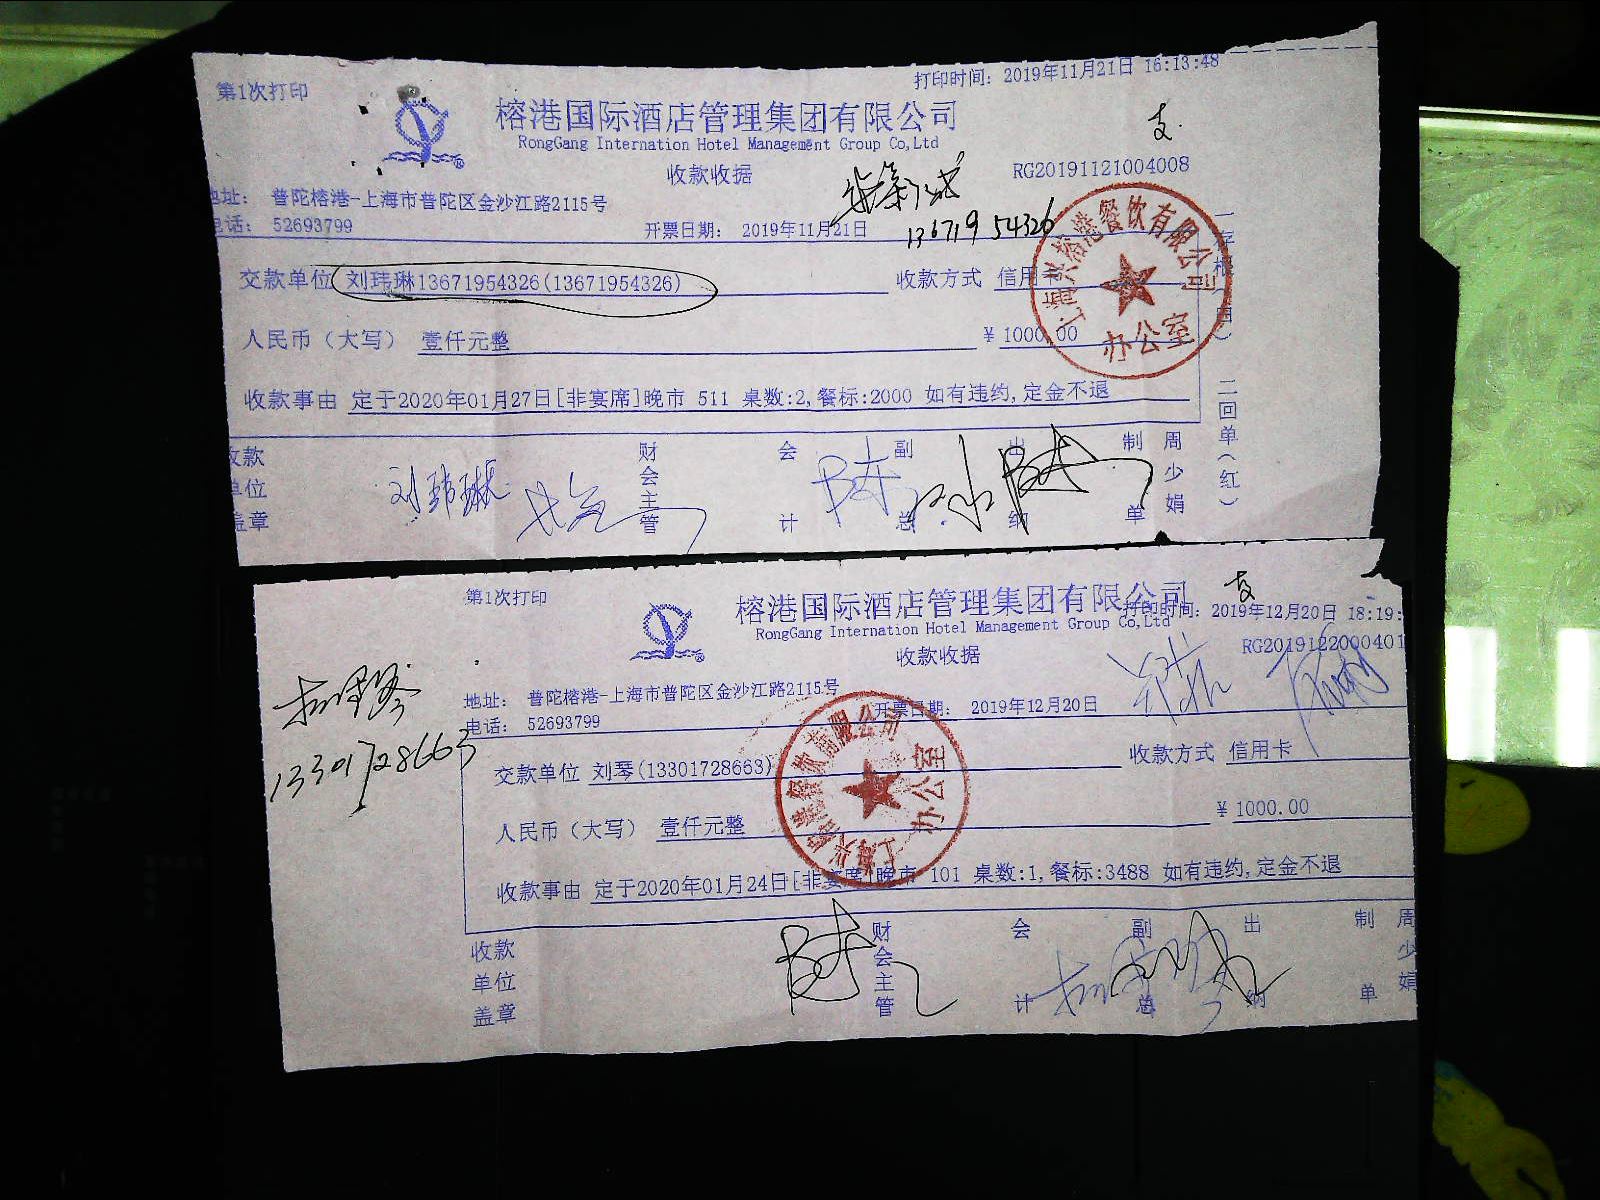 第1次打印
打印时间: 2019年11月21日 16:13:48
榕港国际酒店管理集团有限公司
RongGang Internation Hotel Management Group Co,Ltd
支
收款收据
RG20191121004008
地址: 普陀榕港-上海市普陀区金沙江路2115号
电话: 52693799
开票日期: 2019年11月21日
13671954326
交款单位 刘玮琳13671954326(13671954326)
收款方式 信用卡
人民币（大写） 壹仟元整
¥ 1000.00
收款事由 定于2020年01月27日[非宴席]晚市 511 桌数:2,餐标:2000 如有违约,定金不退
二回单(红)
办公室
收款单位盖章
刘玮琳
财会主管
会计
副总
出纳
制单
周少娟
第1次打印
榕港国际酒店管理集团有限公司
支
打印时间: 2019年12月20日 18:19:
RongGang Internation Hotel Management Group Co,Ltd
收款收据
RG2019122000401
地址: 普陀榕港-上海市普陀区金沙江路2115号
电话: 52693799
开票日期: 2019年12月20日
13301728663
交款单位 刘琴(13301728663)
收款方式 信用卡
人民币（大写） 壹仟元整
¥ 1000.00
收款事由 定于2020年01月24日[非宴席]晚市 101 桌数:1,餐标:3488 如有违约,定金不退
办公室
收款单位盖章
财会主管
会计
副总
出纳
制单
周少娟